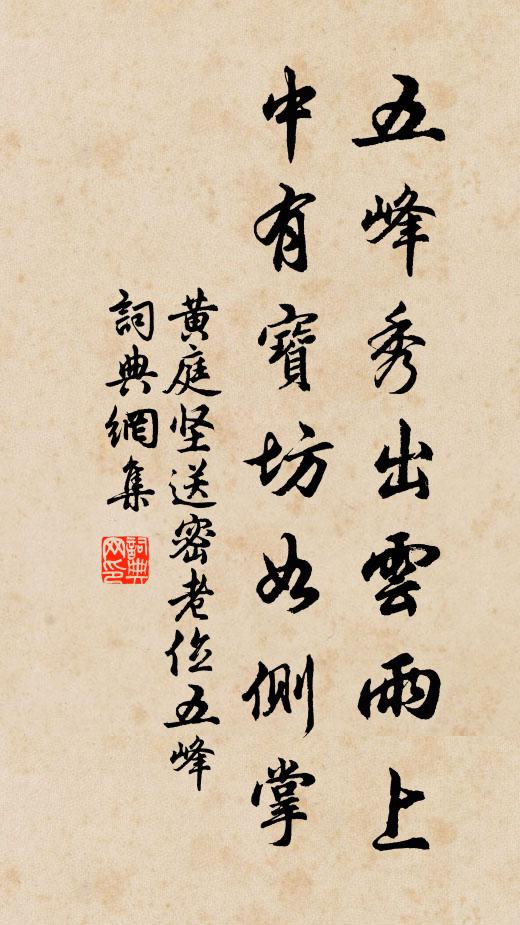 五峰秀出雲雨上
中有寶坊如側掌
黄庭坚送密老住五峰
詞典網集
詞典網印